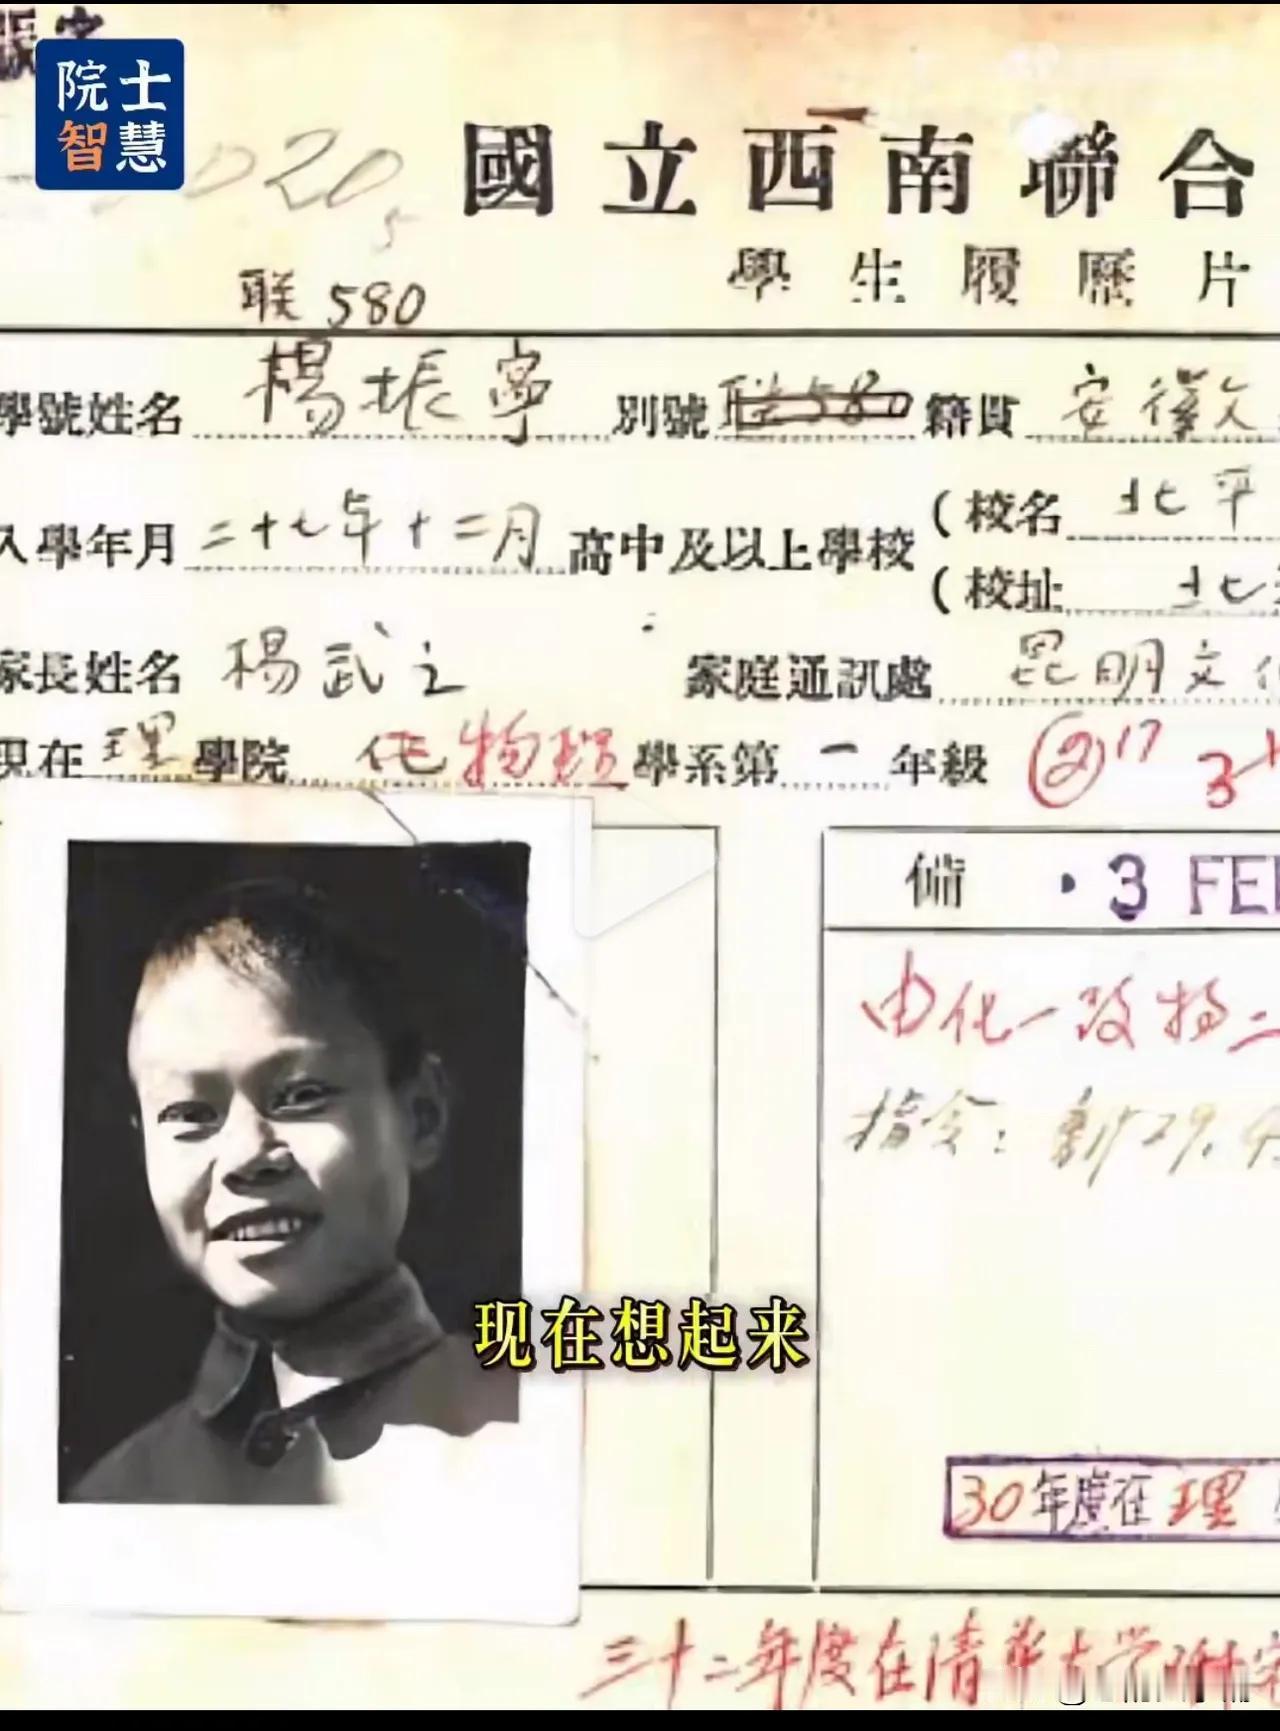 院士
智慧
國立西南聯合
學生履歷片
联580
學號姓名 楊振寧 別號 联580 籍貫 安徽
入學年月 二十七年十二月 高中及以上學校 (校名 北平
(校址 北
家長姓名 楊武之 家庭通訊處 昆明文化
現在 理 學院 化 物理 學系第 一 年級 (2) 17 3
備 ·3 FE
由化一改物二
指令:
现在想起来
30年度在理
三十二年度在清華大学